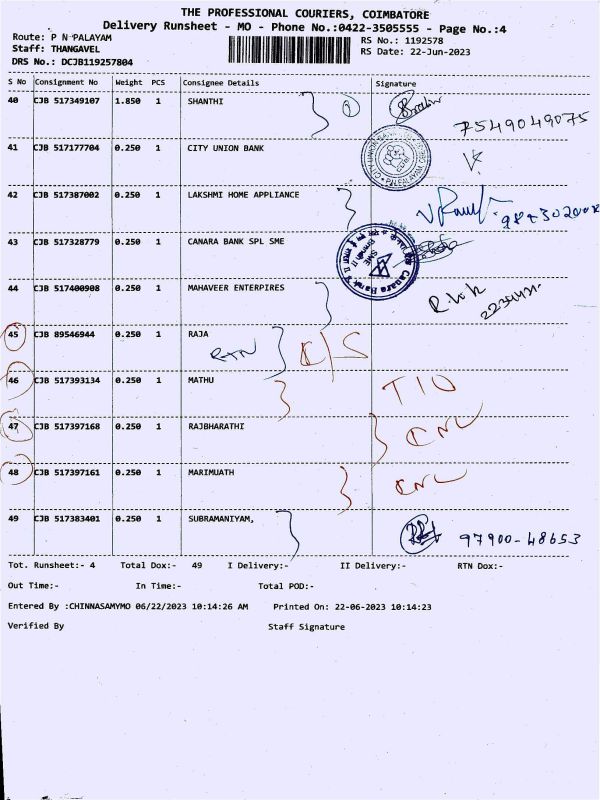 THE PROFESSIONAL COURIERS, COIMBATORE
Delivery Runsheet - MO - Phone No.:0422-3505555 - Page No.:4
Route: P N PALAYAM
RS No.: 1192578
Staff: THANGAVEL
RS Date: 22-Jun-2023
DRS No.: DCJB119257804
S No Consignment No Weight PCS Consignee Details Signature
40 CJB 517349107 1.850 1 SHANTHI
7549049075
41 CJB 517177704 0.250 1 CITY UNION BANK
42 CJB 517387002 0.250 1 LAKSHMI HOME APPLIANCE
43 CJB 517328779 0.250 1 CANARA BANK SPL SME
44 CJB 517400908 0.250 1 MAHAVEER ENTERPIRES
45 CJB 89546944 0.250 1 RAJA
RTN C/S
46 CJB 517393134 0.250 1 MATHU
47 CJB 517397168 0.250 1 RAJBHARATHI CNL
48 CJB 517397161 0.250 1 MARIMUATH CNL
49 CJB 517383401 0.250 1 SUBRAMANIYAM,
97900-48653
Tot. Runsheet:- 4 Total Dox:- 49 I Delivery:- II Delivery:- RTN Dox:-
Out Time:- In Time:- Total POD:-
Entered By :CHINNASAMYMO 06/22/2023 10:14:26 AM Printed On: 22-06-2023 10:14:23
Verified By Staff Signature